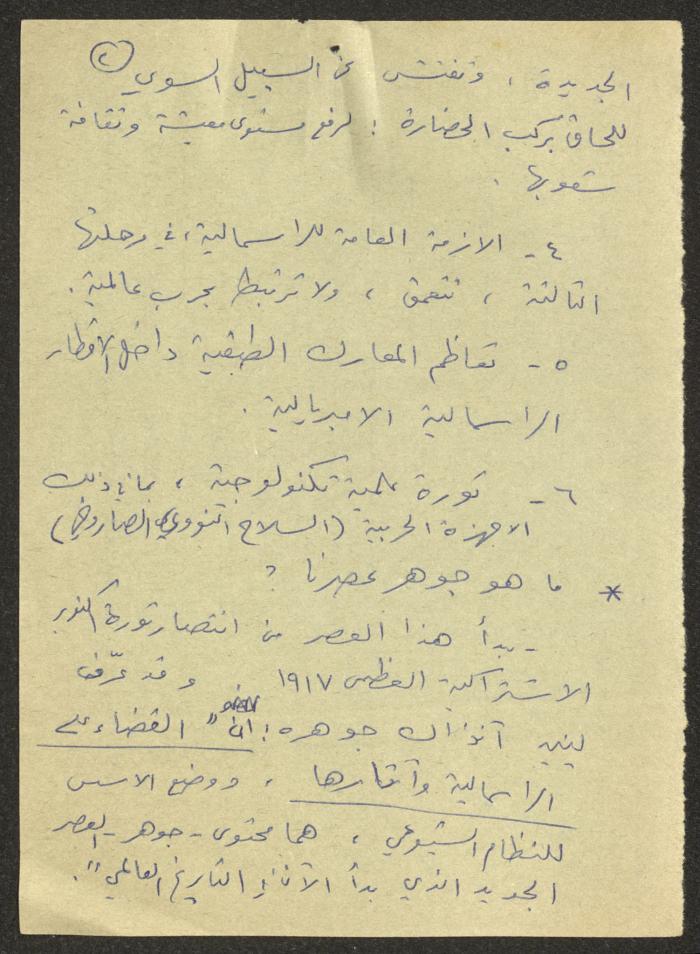 (٢)
الجديدة ، وتفتش عن السبيل السوي
للحاق بركب الحضارة : لرفع مستوى معيشة وثقافة
شعوبها .
٤ - الازمة العامة للراسمالية ، في مرحلتها
الثالثة ، تتعمق ، ولا ترتبط بحرب عالمية .
٥ - تعاظم المعارك الطبقية داخل الاقطار
الراسمالية الامبريالية .
٦ - ثورة علمية تكنولوجية ، بما في ذلك
الاجهزة الحربية (السلاح النووي الصاروخي)
* ما هو جوهر عصرنا ؟
- يبدأ هذا العصر من انتصار ثورة اكتوبر
الاشتراكية العظمى ١٩١٧ وقد عرّف
لينين آنذاك جوهره : ان " القضاء على
الراسمالية وآثارها ، ووضع الاسس
للنظام الشيوعي ، هما محتوى - جوهر - العصر
الجديد الذي بدأ الآن في التاريخ العالمي " .